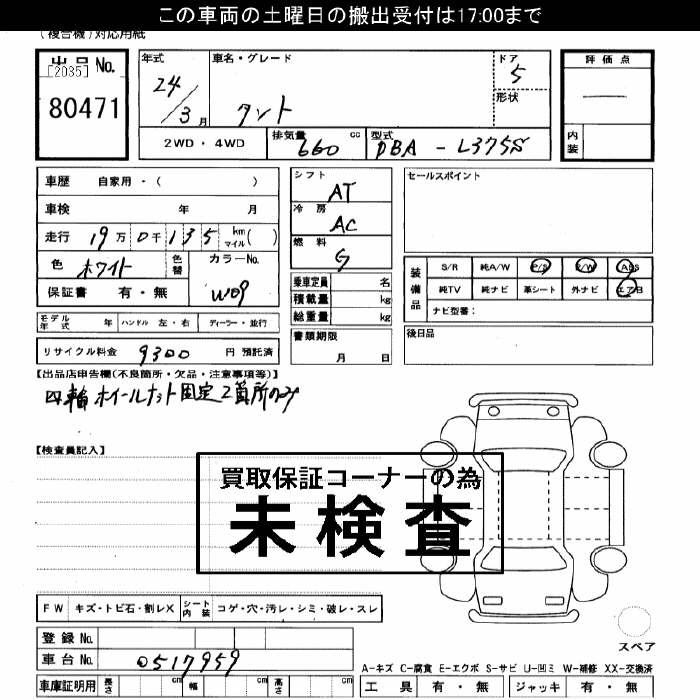 この車両の土曜日の搬出受付は17:00まで
(複合機)対応用紙
出品No.
[2035]
80471
年式
24/3月
車名・グレード
タント
ドア
5
形状
評価点
内装
2WD・4WD
排気量 660 cc
型式 DBA - L375S
車歴 自家用・( )
車検 年 月
走行 19万0千135 km マイル( )
色 ホワイト 色替
カラーNo. W09
保証書 有・無
シフト AT
冷房 AC
燃料 G
乗車定員 名
積載量 kg
総重量 kg
書類期限
月 日
セールスポイント
装備品
S/R 純A/W P/S P/W ABS
純TV 純ナビ 革シート 外ナビ エアB
ナビ型番:
後日品
モデル年式 年 ハンドル 左・右 ディーラー・並行
リサイクル料金 9300 円 預託済
【出品店申告欄(不良箇所・欠品・注意事項等)】
四輪ホイールナット固定2箇所のみ
【検査員記入】
買取保証コーナーの為
未検査
FW キズ・トビ石・割レX シート内装 コゲ・穴・汚レ・シミ・破レ・スレ
登録No.
車台No. 0517959
車庫証明用 長さ cm 幅 cm 高さ cm
スペア
A-キズ C-腐食 E-エクボ S-サビ U-凹ミ W-補修 XX-交換済
工具 有・無 ジャッキ 有・無